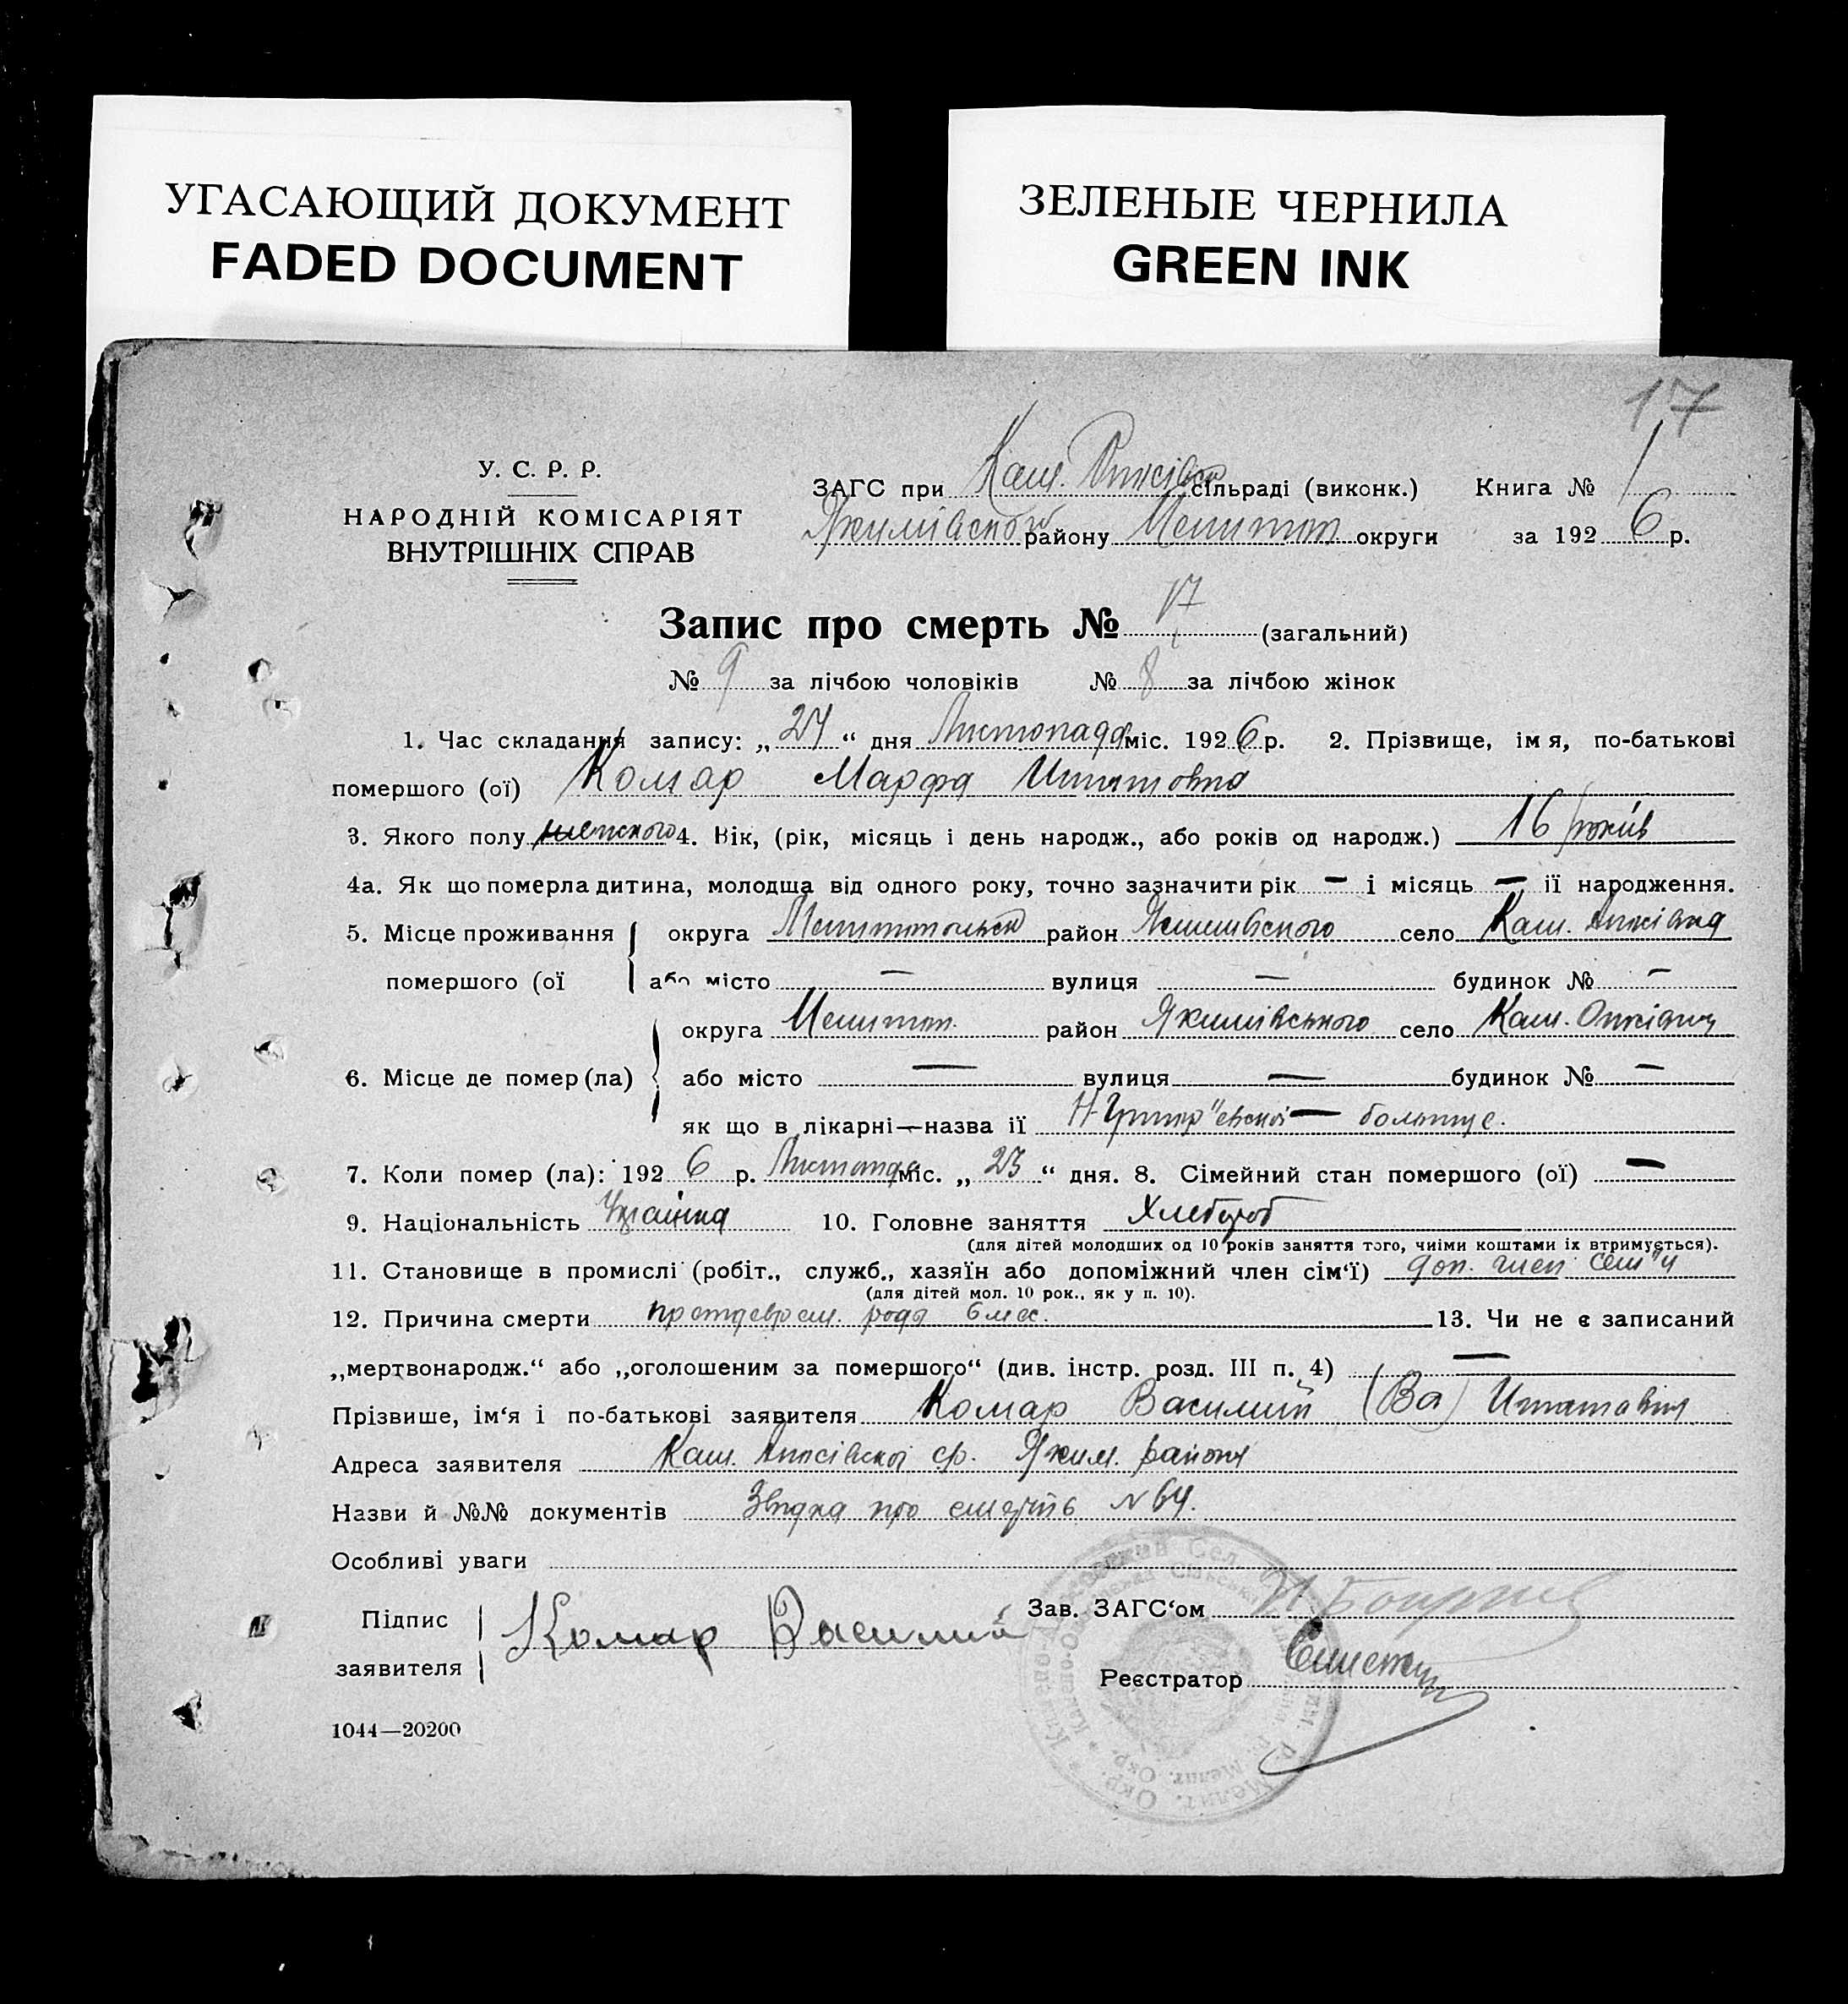 УГАСАЮЩИЙ ДОКУМЕНТ
FADED DOCUMENT
ЗЕЛЕНЫЕ ЧЕРНИЛА
GREEN INK
17
У. С. Р. Р.
НАРОДНІЙ КОМІСАРІЯТ
ВНУТРІШНІХ СПРАВ
ЗАГС при Каш. сільраді (виконк.) Книга № 1
району Мелитоп округи за 1926 р.
Запис про смерть № 17 (загальний)
№ 9 за лічбою чоловіків № 8 за лічбою жінок
1. Час складання запису: „24“ дня Листопада міс. 1926 р. 2. Прізвище, імя, по-батькові
помершого (ої) Комар Марфа
3. Якого полу женского 4. Вік, (рік, місяць і день народж., або років од народж.) 16 років
4а. Як що померла дитина, молодша від одного року, точно зазначити рік — і місяць — ії народження.
5. Місце проживання округа район село Каш.
помершого (ої або місто — вулиця — будинок № —
округа Мелитоп. район Якимівського село Каш.
6. Місце де помер (ла) або місто — вулиця — будинок № —
як що в лікарні—назва ії
7. Коли помер (ла): 1926 р. Листопада міс. „23“ дня. 8. Сімейний стан помершого (ої) —
9. Національність Українка 10. Головне заняття Хлебороб
(для дітей молодших од 10 років заняття того, чиіми коштами іх втримується).
11. Становище в промислі (робіт., служб., хазяїн або допоміжний член сім‘ї) доп. член сем"и
(для дітей мол. 10 рок., як у п. 10).
12. Причина смерти роды 6 мес. 13. Чи не є записаний
„мертвонародж.“ або „оголошеним за помершого“ (див. інстр. розд. III п. 4) —
Прізвише, ім‘я і по-батькові заявителя Комар Василий (Ва)
Адреса заявителя Каш. ср. Яким. района
Назви й №№ документів про смерть N 64.
Особливі уваги
Підпис
заявителя Комар Василий
Зав. ЗАГС‘ом
Реєстратор
1044—20200